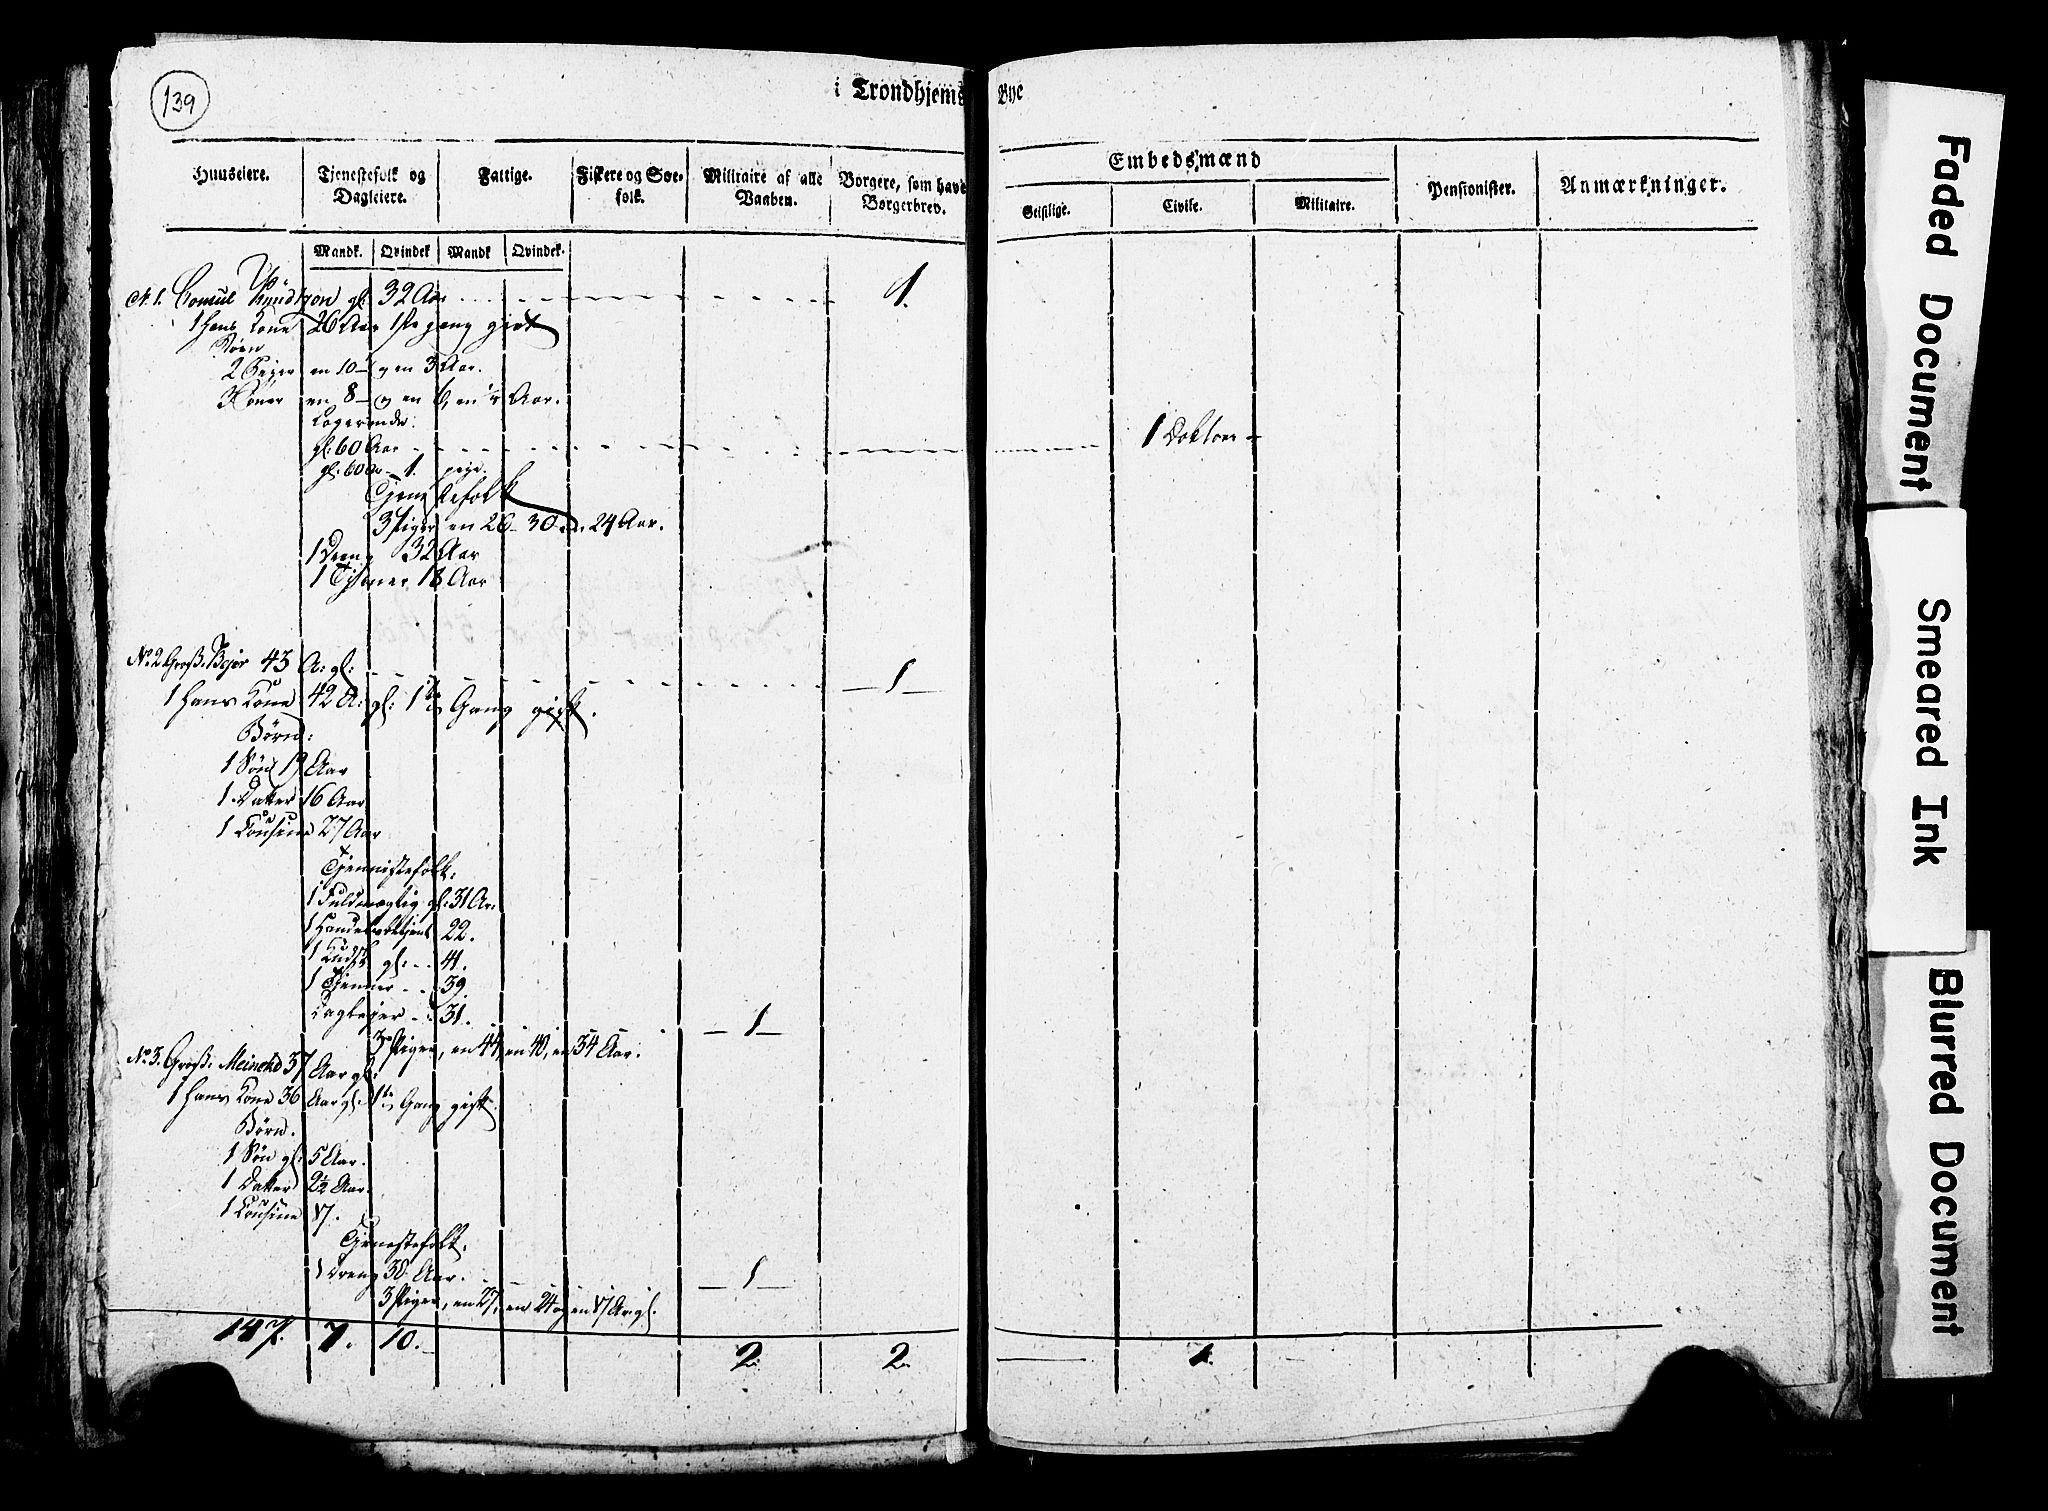 139
i Trondhjems Bye
Huuseiere.
Tjenestefolk og Dagleiere.
Fattige.
Fiskere og Søefolk.
Militaire af alle Vaaben.
Borgere, som have Borgerbrev.
Embedsmænd
Geistlige.
Civile.
Militaire.
Pensionister.
Anmærkninger.
Mandk. Qvindek Mandk Qvindek.
No 1. Consul Knudtzon gl: 32 Aar 1.
1 hans Kone 26 Aar 1ste gang givt
Børn
2 Piger en 10 og en 3 Aar.
3 Sønner en 8 og en 6, en Aar.
Logerende.
gl: 60 Aar 1 Doktor
gl: 60 Aar 1. pige.
Tjenestefolk
3 Piger en 26 30 24 Aar.
1 Dreng 32 Aar
1 Tjener 18 Aar
No 2 Gross: 43 A: gl: 1
1 hans Kone 42 A: gl: 1te Gang gift.
Børn:
1 Søn 19 Aar
1 Datter 16 Aar
1 Cousine 27 Aar
Tjennistefolk:
1 Fuldmægtig gl: 31 Ar:
1 22.
1 Kudsk gl: 41.
1 Tjenner 39
Dagleyer 31. 1
3 Piger, en 44, en 40, en 34 Aar.
No 3. Gross: Meincke 37 Aar gl:
1 hans Kone 36 Aar gl: 1te Gang gift.
Børn.
1 Søn gl: 5 Aar.
1 Datter 2½ Aar.
1 Cousine 17.
Tjenestefolk.
1 Dreng 30 Aar. 1
3 Piger, en 27, en 24 og en 17 Ar gl.
7. 10. 2. 2. 1.
Faded Document
Smeared Ink
Blurred Document